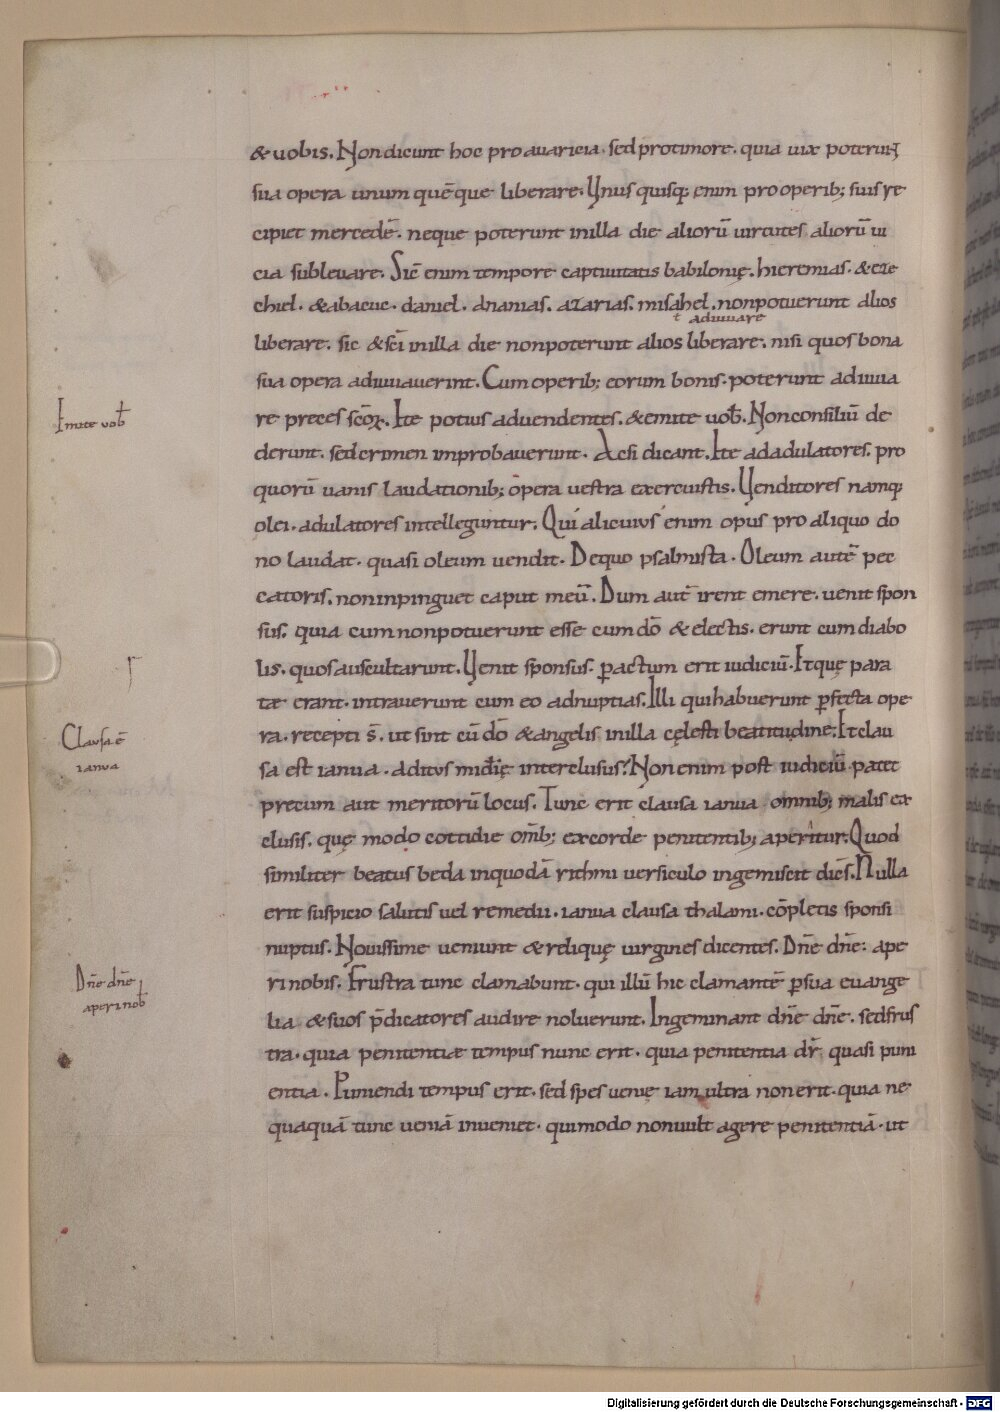 & uobis. Non dicunt hoc pro auaricia. sed pro timore. quia uix poterunt
sua opera unum quēque liberare. Unus quisq; enim pro operib; suis re
cipiet mercedē. neque poterunt in illa die aliorū uirtutes aliorū ui
cia subleuare. Sic̄ enim tempore captiuitatis babilonię. hieremias. & eze
chiel. & abacuc. daniel. Ananias. azarias. misahel. non potuerunt alios
ł adiuuare
liberare. sic & sc̄i in illa die non poterunt alios liberare. nisi quos bona
sua opera adiuuauerint. Cum operib; eorum bonis. poterunt adiuua
re preces scōꝝ. Ite potius ad uendentes. & emite uob̄. Non consiliū de
Emite uob̄
derunt. sed crimen improbauerunt. Ac si dicant. Ite ad adulatores. pro
quorū uanis laudationib; opera uestra exercuistis. Uenditores namq;
olei. adulatores intelleguntur. Qui alicuius enim opus pro aliquo do
no laudat. quasi oleum uendit. De quo psalmista. Oleum autē pec
catoris. non inpinguet caput meū. Dum aut̄ irent emere. uenit spon
sus. quia cum non potuerunt esse cum dō & electis. erunt cum diabo
lis. quos auscultarunt. Uenit sponsus. ꝑactum erit iudiciū. Et quę para
tæ erant. intrauerunt cum eo ad nuptias. Illi qui habuerunt ꝑfecta ope
ra. recepti s̄. ut sint cū dō & angelis in illa cęlesti beatitudine. Et clau
Clausa ē
ianua
sa est ianua. aditus mīdię interclusus. Non enim post iudiciū patet
precum aut meritorū locus. Tunc erit clausa ianua omnib; malis ex
clusis. quę modo cottidie om̄b; ex corde penitentib; aperitur. Quod
similiter beatus beda in quodā rithmi uersiculo ingemiscit dicēs. Nulla
erit suspicio salutis uel remedii. ianua clausa thalami. cōpletis sponsi
nuptiis. Nouissime ueniunt & rdiquę uirgines dicentes. Dn̄e dn̄e: ape
Dn̄e dn̄e
aperi nob̄
ri nobis. Frustra tunc clamabunt. qui illū hic clamantē ꝑ sua euange
lia & suos p̄dicatores audire noluerunt. Ingeminant dn̄e dn̄e. sed frus
tra. quia penitentiæ tempus nunc erit. quia penitentia dr̄ quasi puni
entia. Puniendi tempus erit. sed spes uenię iam ultra non erit. quia ne
quaquā tunc ueniā inueniet. qui modo non uult agere penitentiā. ut
Digitalisierung gefördert durch die Deutsche Forschungsgemeinschaft - DFG